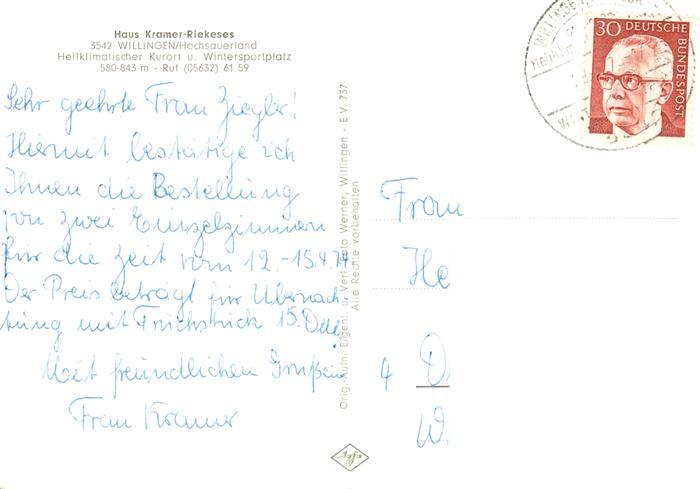 Haus Kramer-Riekeses
3542 WILLINGEN/Hochsauerland
Heilklimatischer Kurort u. Wintersportplatz
580-843 m - Ruf (05632) 61 59
Sehr geehrte Frau Ziegler!
Hiermit bestätige ich
Ihnen die Bestellung
von zwei Einzelzimmern
für die Zeit vom 12.-15.4.74
Der Preis beträgt für Übernach
tung mit Frühstück 15.
Mit freundlichen Grüßen
Frau Kramer
Orig.-Aufn. Eigent. u. Verl. Foto Werner, Willingen - E.V. 737
Alle Rechte vorbehalten
Agfa
30 DEUTSCHE
BUNDESPOST
WILLINGEN
Frau
He
4 D
W.